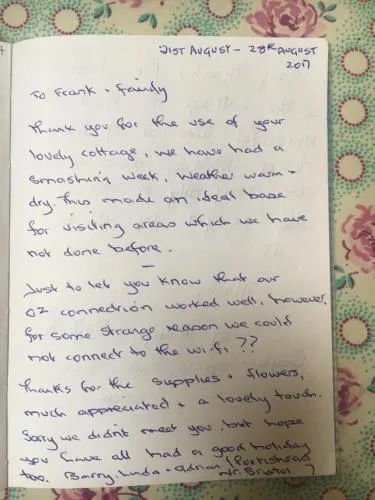 21ST AUGUST - 28TH AUGUST
2017
To Frank + Family
Thank you for the use of your
lovely cottage, we have had a
smashing week, weather warm +
dry. This made an ideal base
for visiting areas which we have
not done before.
—
Just to let you know that our
O2 connection worked well, however,
for some strange reason we could
not connect to the wi.fi ??
Thanks for the supplies + flowers,
much appreciated + a lovely touch.
Sorry we didn't meet you, but hope
you have all had a good holiday
too. Barry, Linda + Adrian (Portishead
Nr. Bristol)